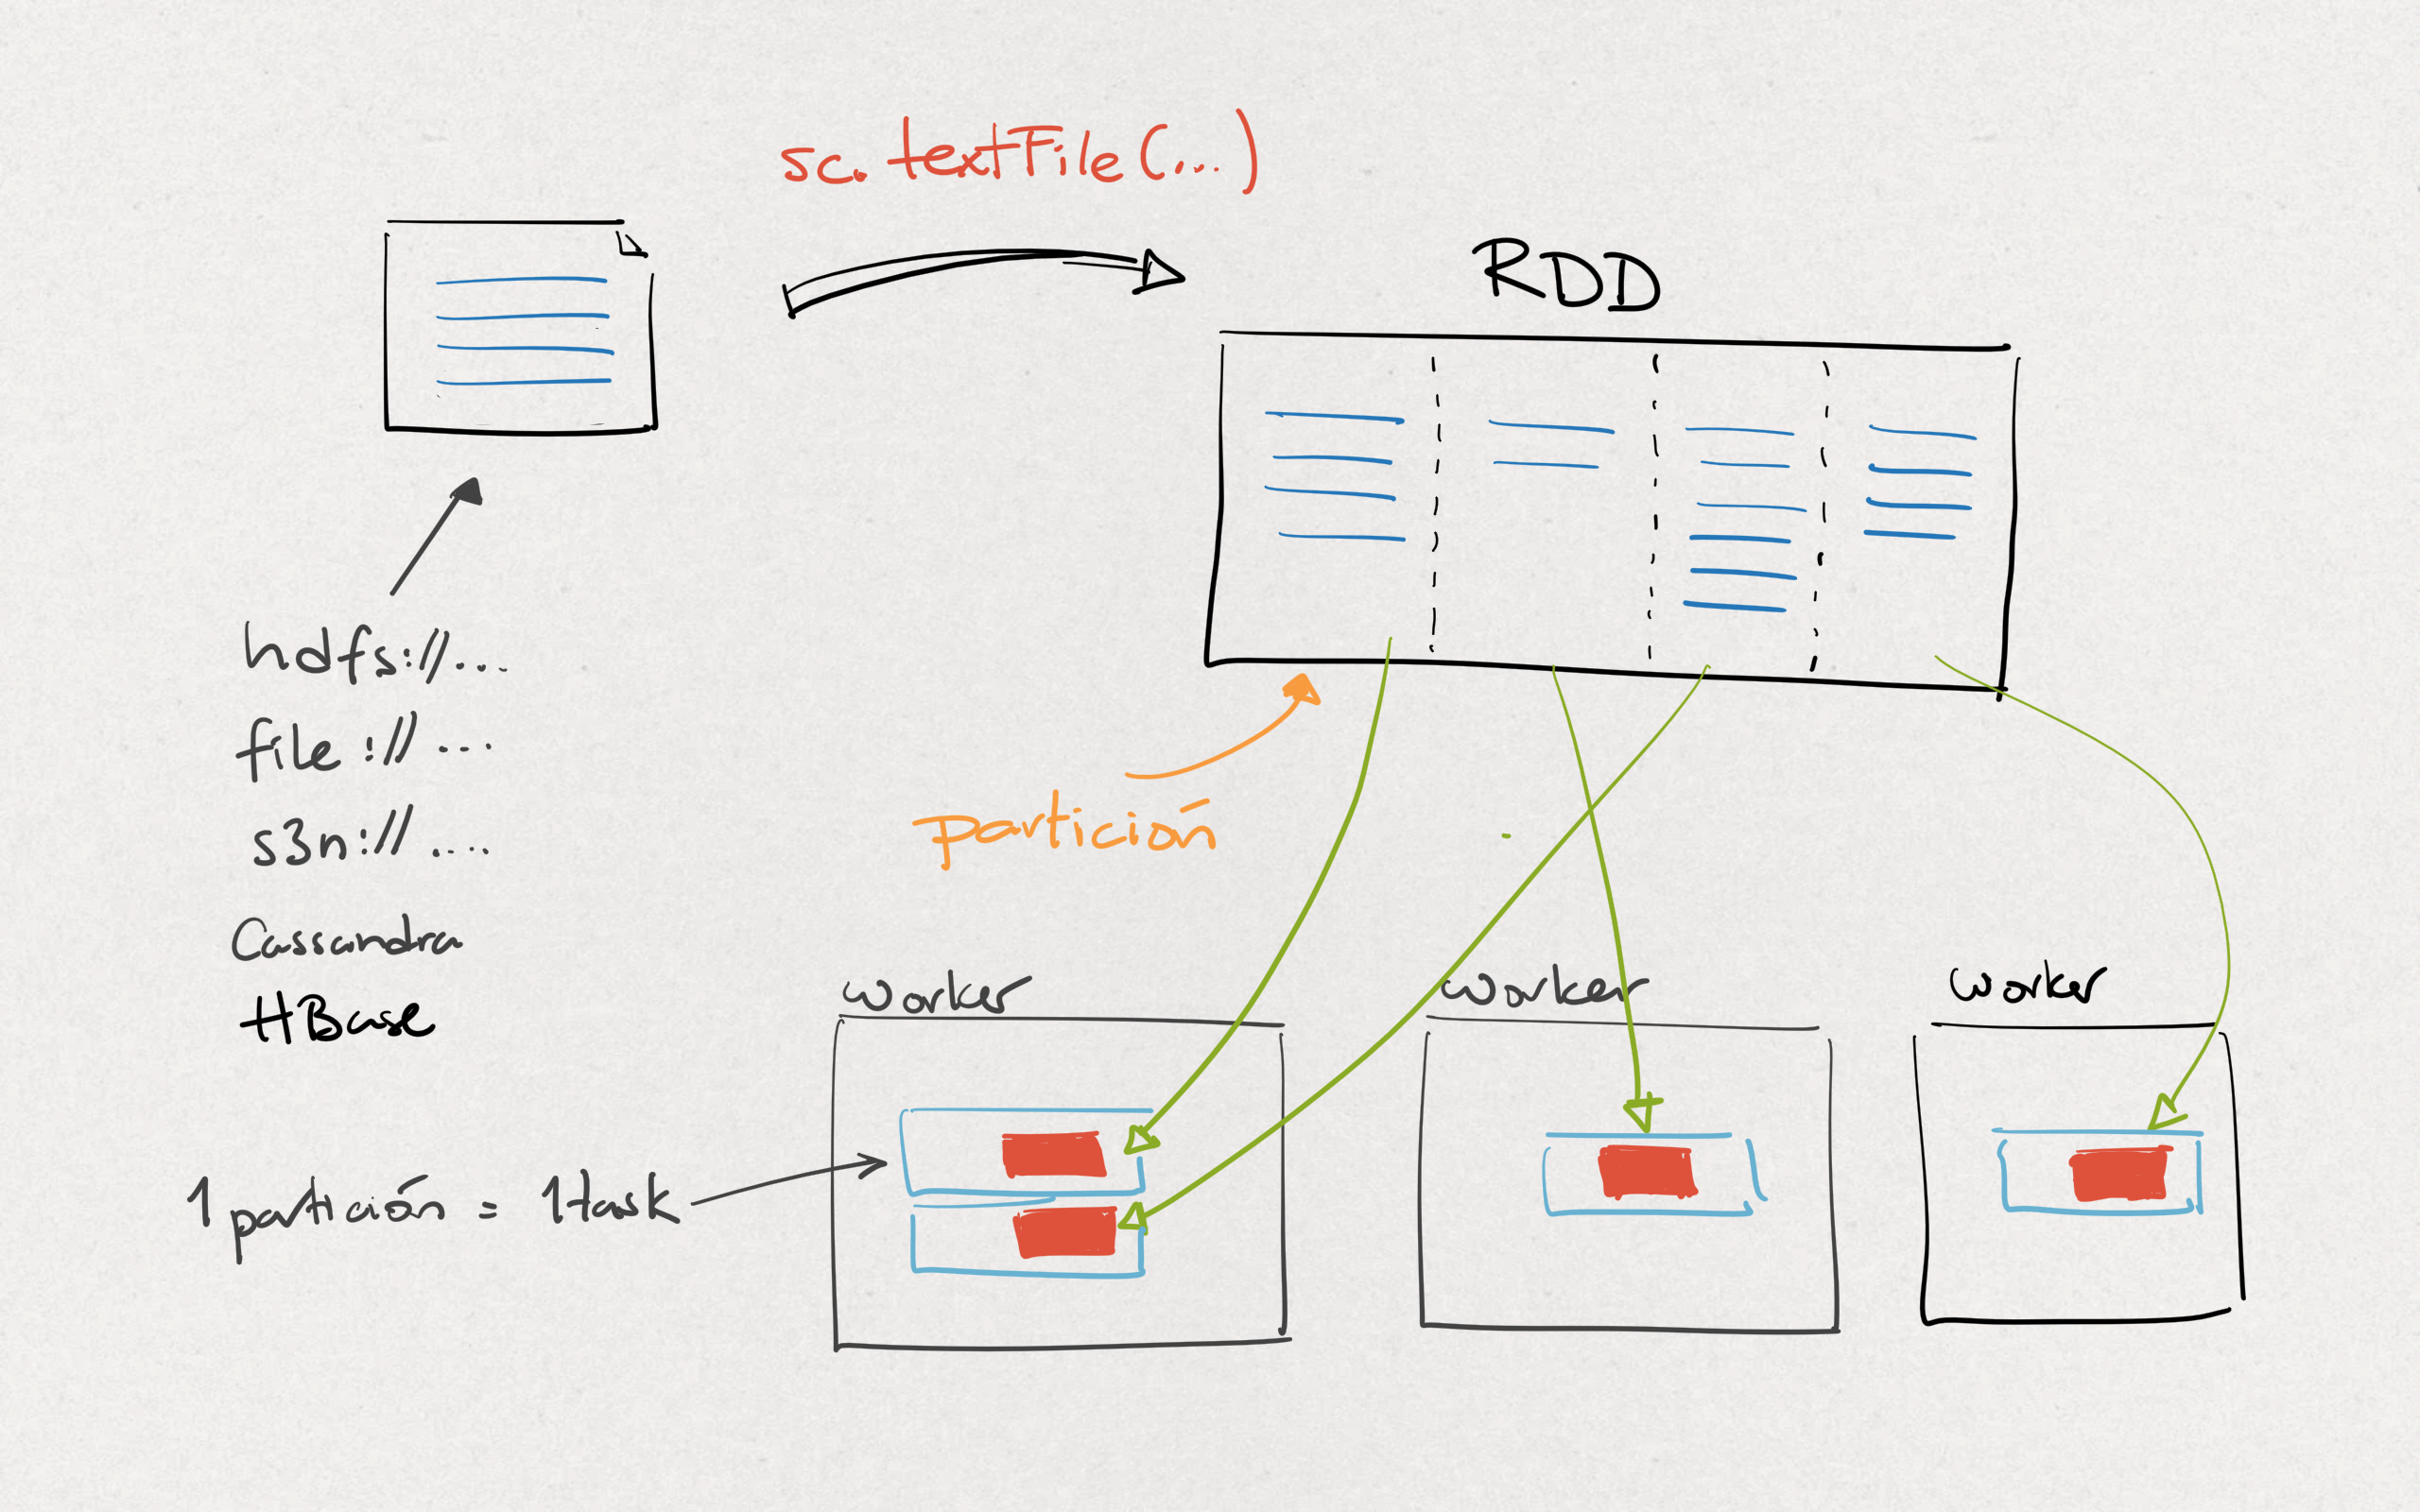 sc.textFile(...)
RDD
hdfs://...
file://...
s3n://....
Cassandra
HBase
partición
worker
worker
worker
1 partición = 1 task